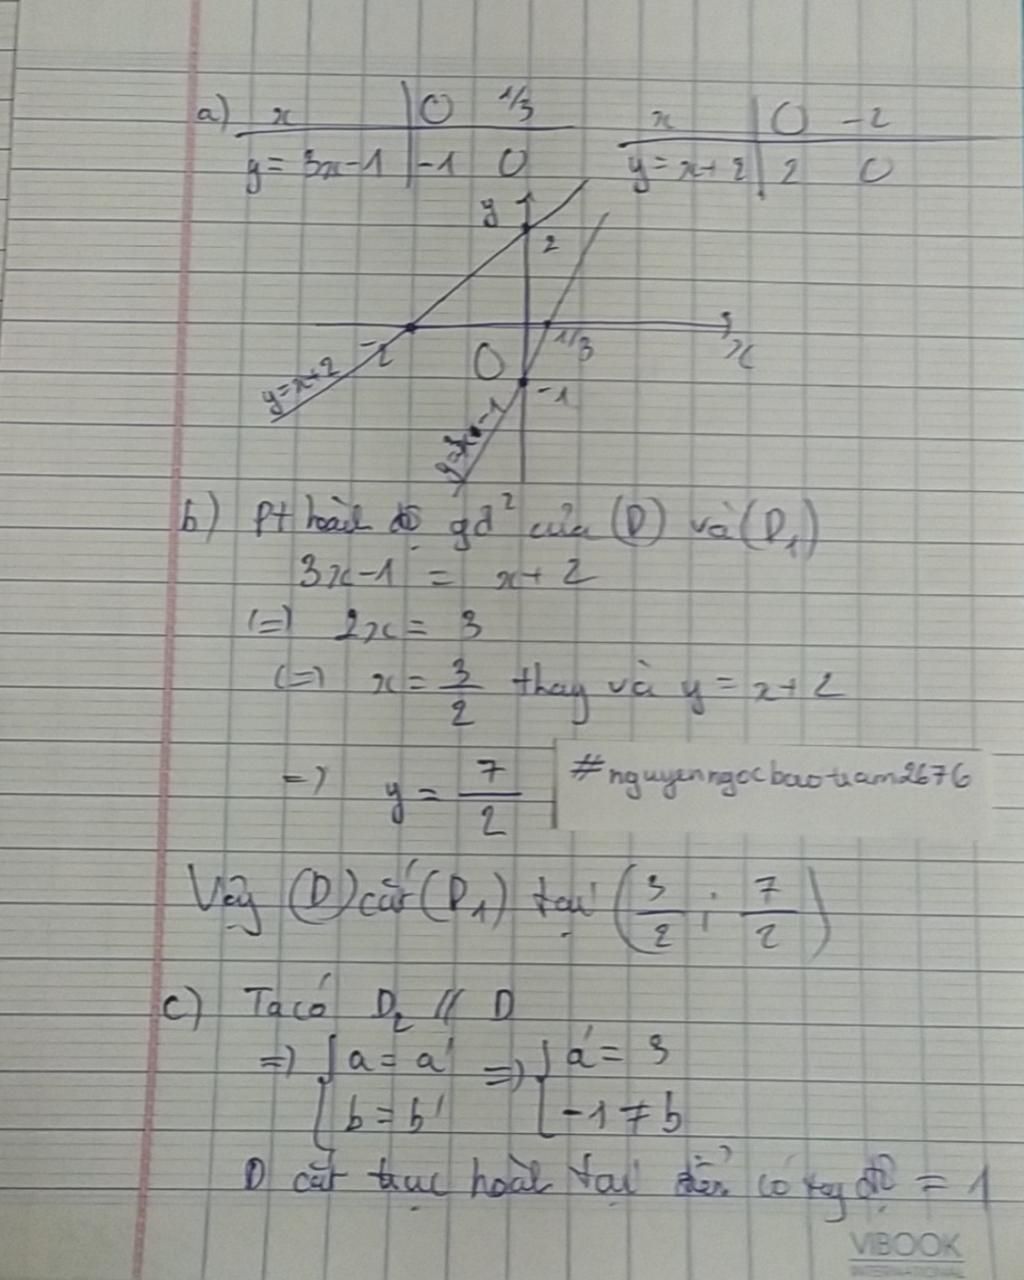 a) x | 0 1/3
y = 3x-1 | -1 0
x | 0 -2
y = x+2 | 2 0
y
2
-2
1/3
x
O
-1
y=x+2
y=3x-1
b) Pt hoành độ gđ² của (D) và (D₁)
3x-1 = x+2
(=) 2x = 3
(=) x = 3/2 thay và y = x+2
=) y = 7/2
#nguyenngocbaotram2676
Vậy (D) cắt (D₁) tại (3/2 ; 7/2)
c) Ta có D₂ // D
=) { a = a' =) { a' = 3
b = b' -1 ≠ b
D cắt trục hoành tại điểm có tung độ = 1
VIBOOK
INTERNATIONAL